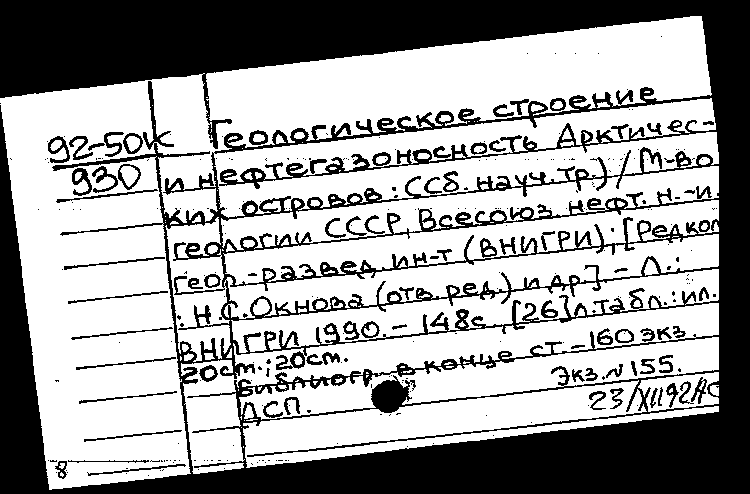 92-50К
930
Геологическое строение
и нефтегазоносность Арктичес-
ких островов : (Сб. науч. тр.) / М-во
геологии СССР, Всесоюз. нефт. н.-и.
геол.-развед. ин-т (ВНИГРИ); [Редкол
: Н.С. Окнова (отв. ред.) и др.] - Л.:
ВНИГРИ, 1990. - 148с., [26]л. табл.: ил.
20см.; 20см.
Библиогр. в конце ст. - 160 экз.
Экз. № 155.
ДСП.
23/XII92
8